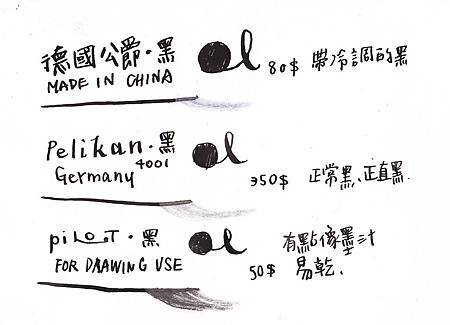 德國公爵·黑
MADE IN CHINA
80$ 帶冷調的黑
Pelikan·黑
4001
Germany
350$ 正常黑、正直黑.
PiLOT·黑
FOR DRAWING USE
有點像墨汁
50$ 易乾、